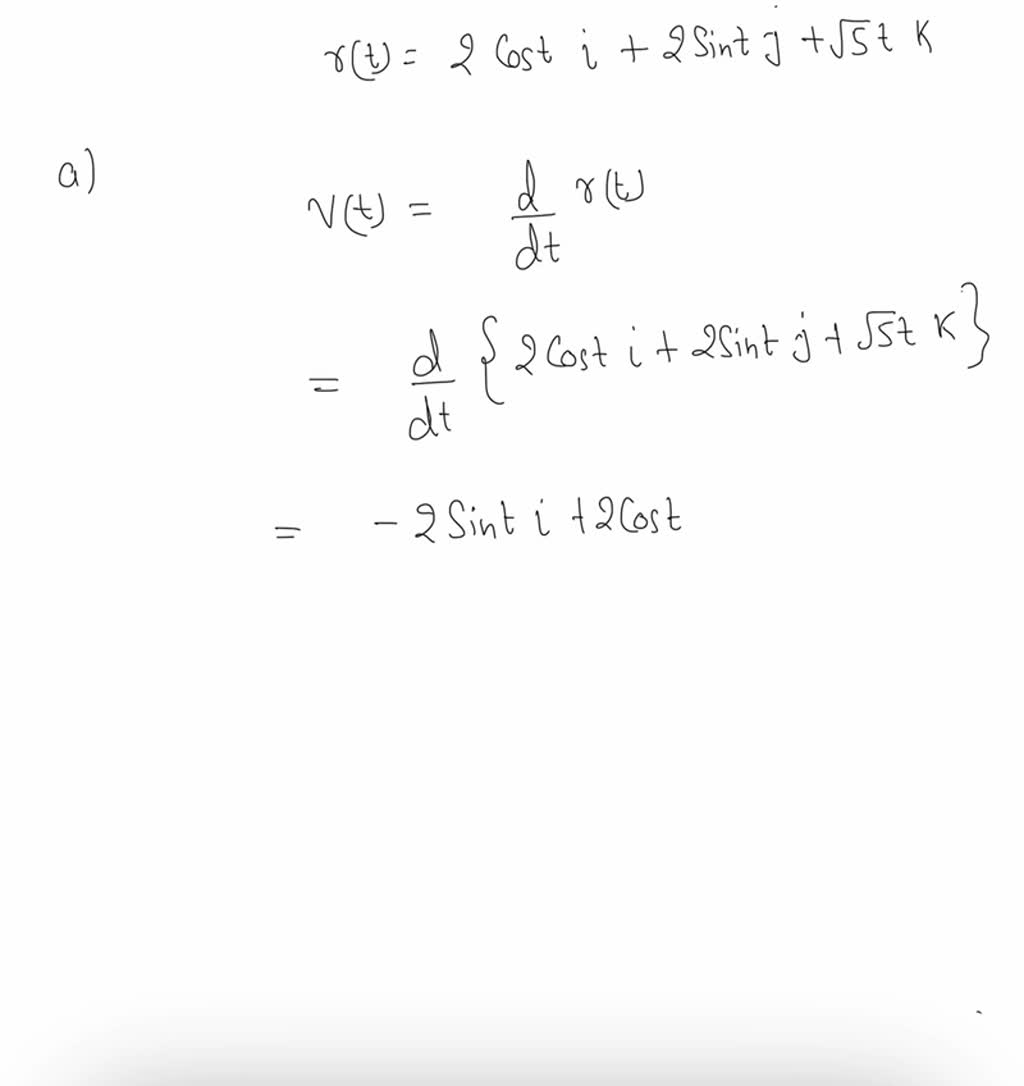 r(t) = 2 Cost i + 2 Sint j + √5t K
a)
V(t) = d/dt r(t)
= d/dt {2 Cost i + 2Sint j + √5t K}
= - 2 Sint i + 2 Cost